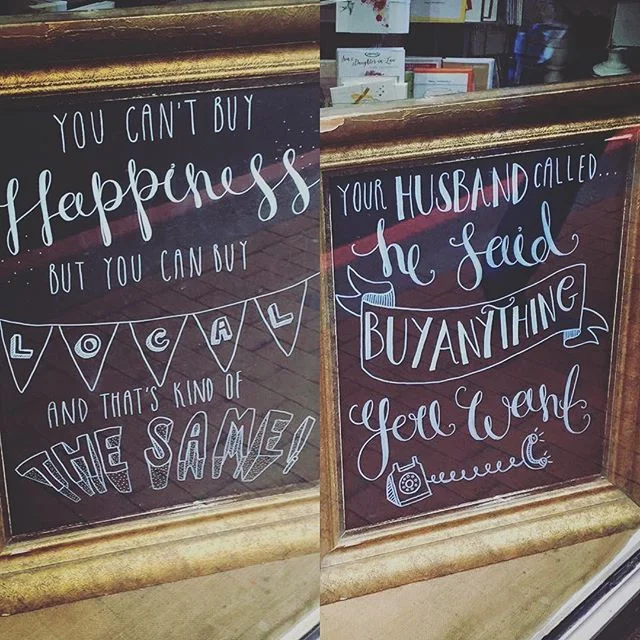 YOU CAN'T BUY
Happiness
BUT YOU CAN BUY
LOCAL
AND THAT'S KIND OF
THE SAME!
YOUR HUSBAND CALLED...
he said
BUY ANYTHING
you want.
Daughter-in-Law